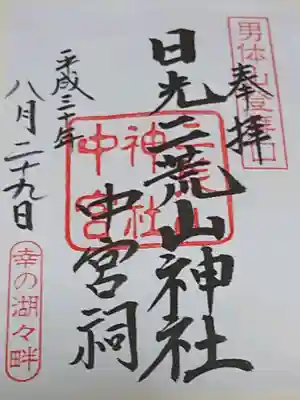 奉拝
男体山登拝口
日光二荒山神社
中宮祠
二荒山
神社
中宮
平成三十年
八月二十九日
幸の湖々畔